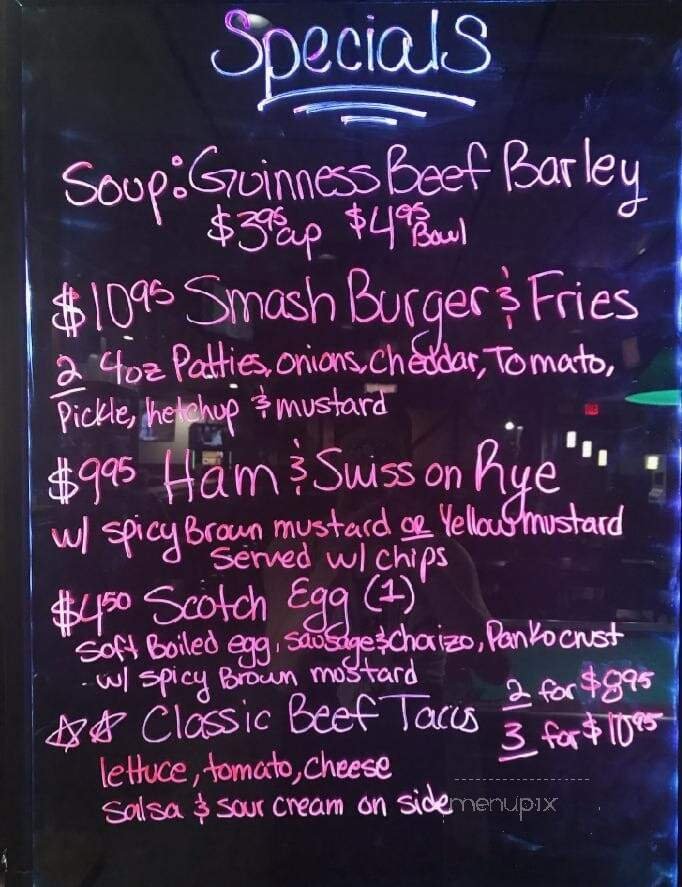 Specials
Soup: Guinness Beef Barley
$3.95 cup $4.95 Bowl
$10.95 Smash Burger & Fries
2 4oz Patties, onions, cheddar, Tomato,
Pickle, ketchup & mustard
$9.95 Ham & Swiss on Rye
w/ spicy Brown mustard or Yellow mustard
Served w/ chips
$4.50 Scotch Egg (1)
Soft Boiled egg, sausage & chorizo, Panko crust
- w/ spicy Brown mustard
☆☆ Classic Beef Tacos 2 for $8.95
3 for $10.95
lettuce, tomato, cheese
Salsa & sour cream on side
menupix